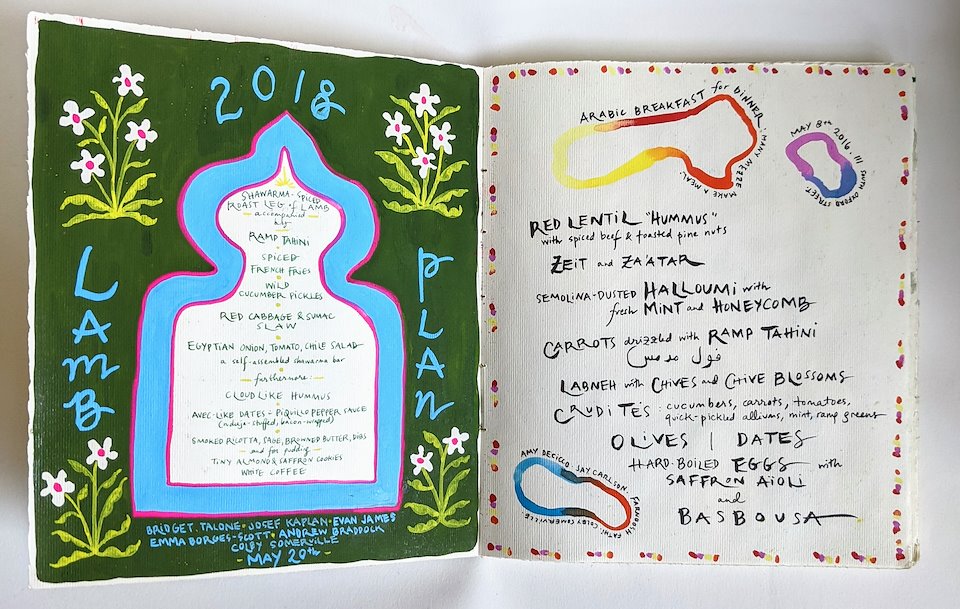 2018
LAMB
PLAN
SHAWARMA-SPICED
ROAST LEG of LAMB
accompanied
by
RAMP TAHINI
SPICED
FRENCH FRIES
WILD
CUCUMBER PICKLES
RED CABBAGE & SUMAC
SLAW
EGYPTIAN ONION, TOMATO, CHILE SALAD
a self-assembled shawarma bar
furthermore:
CLOUD LIKE HUMMUS
AVEC-LIKE DATES - PIQUILLO PEPPER SAUCE
(nduja-stuffed, bacon-wrapped)
SMOKED RICOTTA, SAGE, BROWNED BUTTER, DIBS
and for pudding
TINY ALMOND & SAFFRON COOKIES
WHITE COFFEE
BRIDGET TALONE · JOSEF KAPLAN · EVAN JAMES
EMMA BORGES-SCOTT · ANDREW BRADDOCK
COLBY SOMERVILLE
- MAY 20th -
ARABIC BREAKFAST for DINNER: MANY MEZZE MAKE A MEAL
MAY 8th 2016. 111 SOUTH OXFORD STREET
RED LENTIL "HUMMUS"
with spiced beef & toasted pine nuts
ZEIT and ZA'ATAR
SEMOLINA-DUSTED HALLOUMI with
fresh MINT and HONEYCOMB
CARROTS drizzled with RAMP TAHINI
فول مدمس
LABNEH with CHIVES and CHIVE BLOSSOMS
CRUDITÉS: cucumbers, carrots, tomatoes,
quick-pickled alliums, mint, ramp greens
OLIVES | DATES
HARD-BOILED EGGS with
SAFFRON AïOLI
and
BASBOUSA
AMY DECICCO · JAY CARLSON · FARNOOSH FATHI
COLBY SOMERVILLE